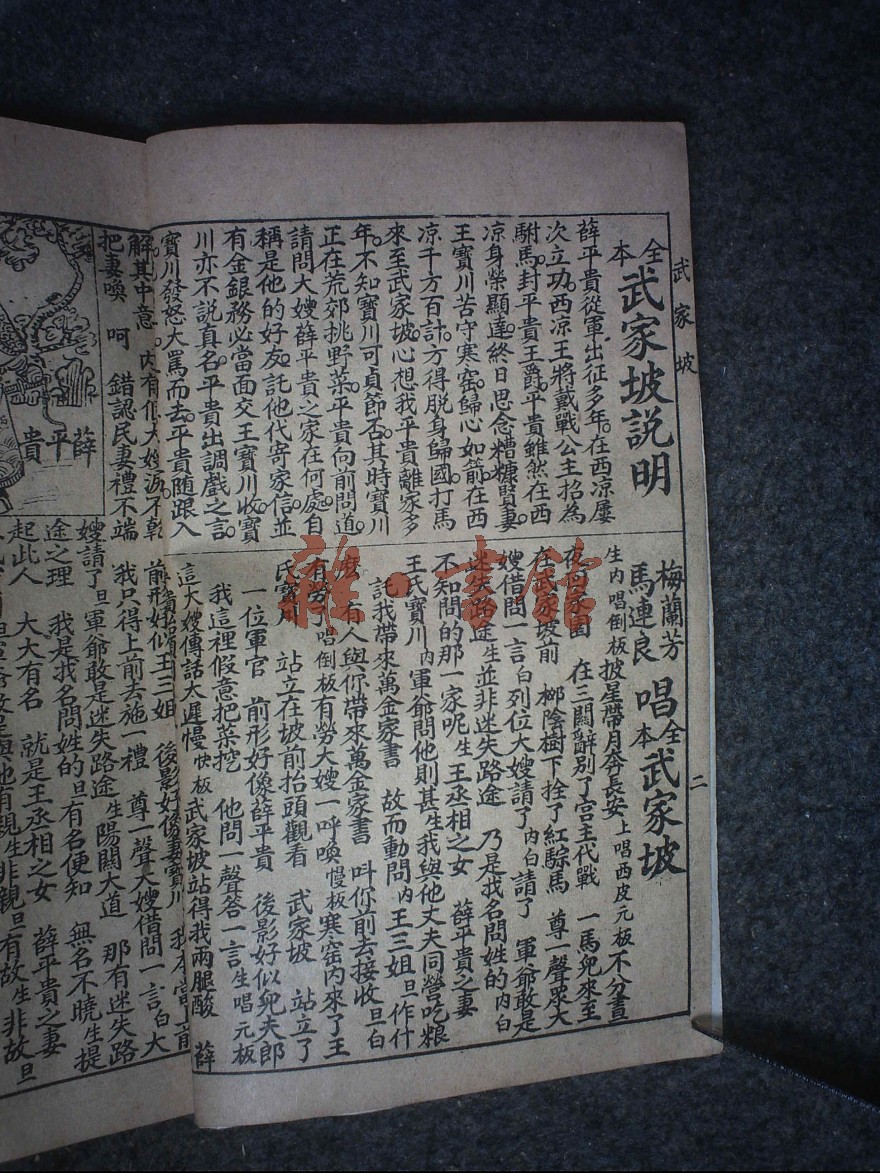 武家坡
二
全本武家坡說明
薛平貴從軍出征多年。在西凉屢
次立功。西凉王將戴戰公主招為
駙馬。封平貴王爵。平貴雖然在西
凉身榮顯達。終日思念糟糠賢妻
王寶川苦守寒窑。歸心如箭。在西
凉千方百計。方得脫身歸國。打馬
來至武家坡。心想我平貴離家多
年。不知寶川可貞節否。其時寶川
正在荒郊挑野菜。平貴向前問道
請問大嫂薛平貴之家在何處。自
稱是他的好友。託他代寄家信。並
有金銀務必當面交王寶川收。寶
川亦不說真名。平貴出調戲之言。
寶川發怒大罵而去。平貴隨跟入
梅蘭芳
馬連良
唱全本武家坡
生內唱倒板披星帶月奔長安 上唱西皮元板不分晝
夜回家園 在三關辭別了宮主代戰 一馬兒來至
在武家坡前 柳陰樹下拴了紅鬃馬 尊一聲眾大
嫂借問一言白列位大嫂請了內白請了 軍爺敢是
迷失路途生並非迷失路途 乃是找名問姓的內白
不知問的那一家呢生王丞相之女 薛平貴之妻
王氏寶川內軍爺問他則甚生我與他丈夫同營吃粮
託我帶來萬金家書 故而動問內王三姐旦作什
麽 有人與你帶來萬金家書 叫你前去接收旦白
有勞了唱倒板有勞大嫂一呼喚慢板寒窑內來了王
氏寶川 站立在坡前抬頭觀看 武家坡 站立了
一位軍官 前形好像薛平貴 後影好似兒夫郎
我這裡假意把菜挖 他問一聲答一言生唱元板
這大嫂傳話太遲慢快板武家坡站得我兩腿酸 薛
解其中意
把妻喚 呵 錯認民妻禮不端
薛平貴
後影好像妻寶川
我只得上前去施一禮 尊一聲大嫂借問一言白大
嫂請了旦軍爺敢是迷失路途生陽關大道 那有迷失路
途之理 我是找名問姓的旦有名便知 無名不曉生提
起此人 大大有名 就是王丞相之女 薛平貴之妻